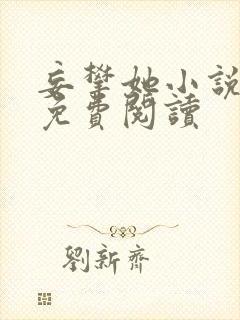 妄攀她小說
免費閱讀
劉新齊